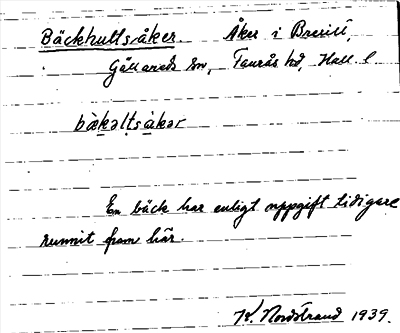 Bäckhultsåker. Åker i Breiit,
Gällareds sn, Faurås hd, Hall. l
bäkəltsåkər
En bäck har enligt uppgift tidigare
runnit fram här.
K. Nordstrand 1939.